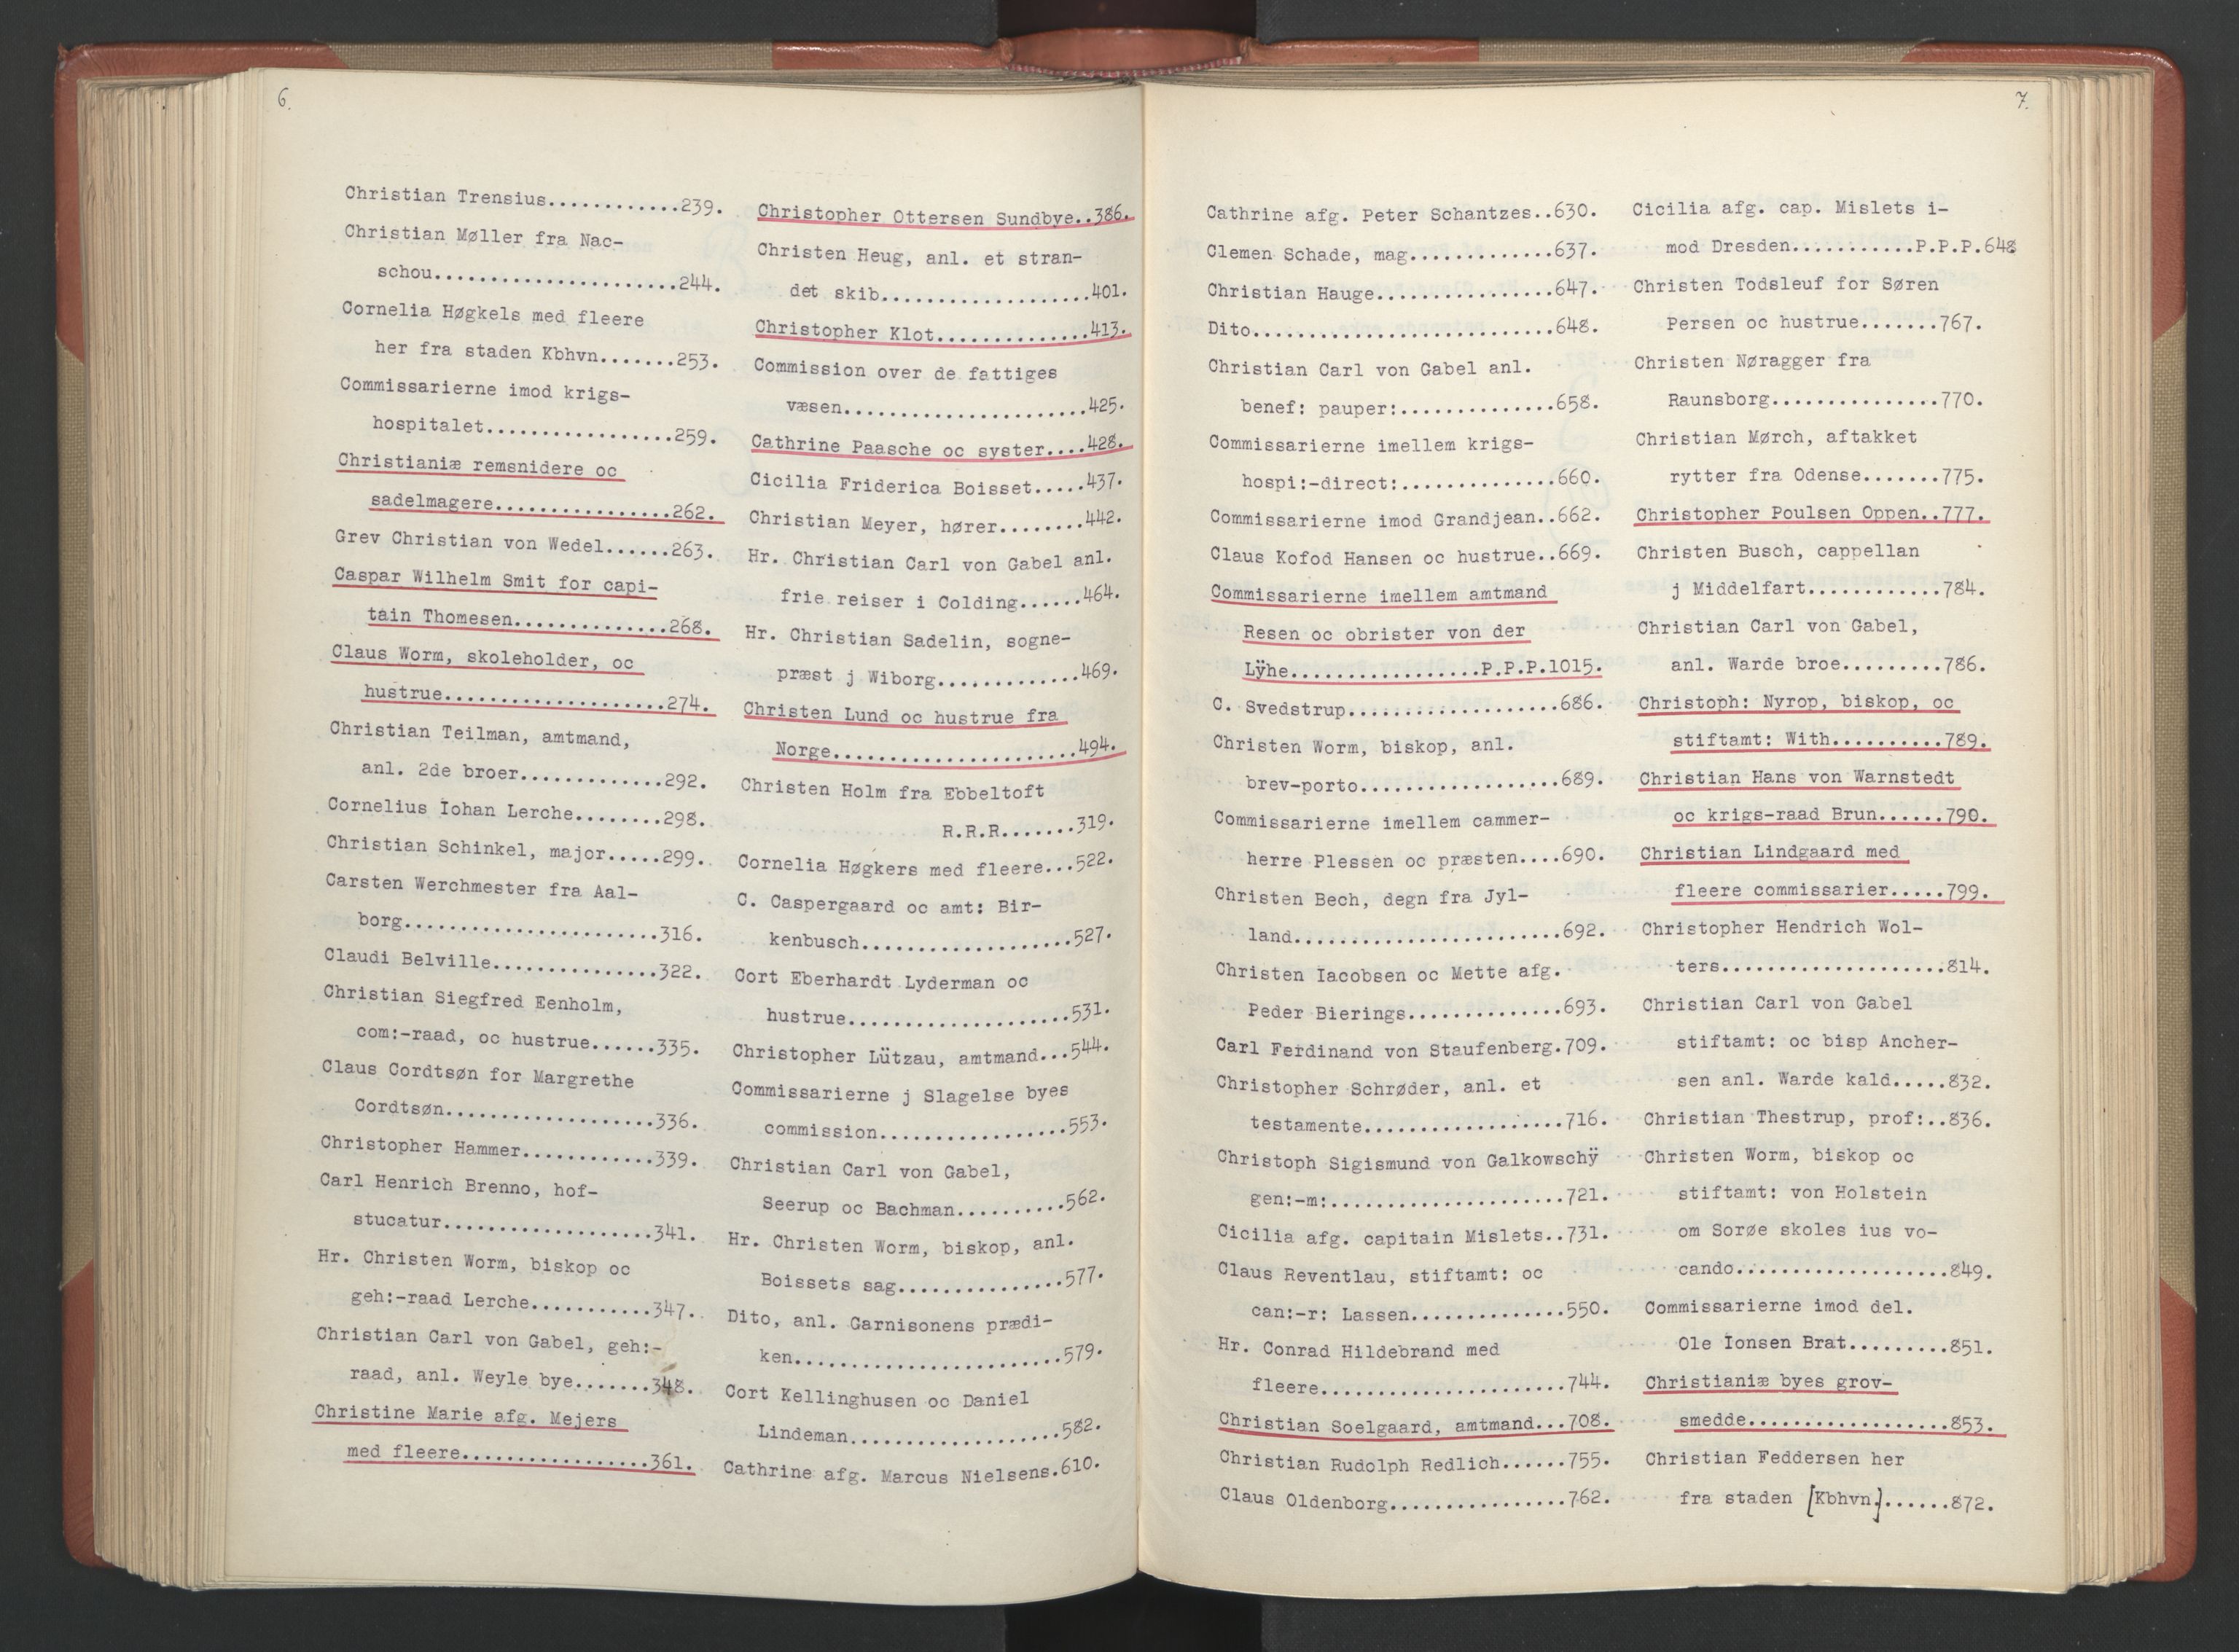 6.
Christian Trensius............239.
Christian Møller fra Nac-
schou......................244.
Cornelia Høgkels med fleere
her fra staden Kbhvn.......253.
Commissarierne imod krigs-
hospitalet.................259.
Christianiæ remsnidere oc
sadelmagere................262.
Grev Christian von Wedel......263.
Caspar Wilhelm Smit for capi-
tain Thomesen..............268.
Claus Worm, skoleholder, oc
hustrue....................274.
Christian Teilman, amtmand,
anl. 2de broer.............292.
Cornelius Iohan Lerche........298.
Christian Schinkel, major.....299.
Carsten Werchmester fra Aal-
borg.......................316.
Claudi Belville...............322.
Christian Siegfred Eenholm,
com:-raad, oc hustrue......335.
Claus Cordtsøn for Margrethe
Cordtsøn...................336.
Christopher Hammer............339.
Carl Henrich Brenno, hof-
stucatur...................341.
Hr. Christen Worm, biskop oc
geh:-raad Lerche...........347.
Christian Carl von Gabel, geh:-
raad, anl. Weyle bye.......348.
Christine Marie afg. Mejers
med fleere.................361.
Christopher Ottersen Sundbye..386.
Christen Heug, anl. et stran-
det skib...................401.
Christopher Klot..............413.
Commission over de fattiges
væsen......................425.
Cathrine Paasche oc syster....428.
Cicilia Friderica Boisset.....437.
Christian Meyer, hører........442.
Hr. Christian Carl von Gabel anl.
frie reiser i Colding......464.
Hr. Christian Sadelin, sogne-
præst j Wiborg.............469.
Christen Lund oc hustrue fra
Norge......................494.
Christen Holm fra Ebbeltoft
R.R.R.......319.
Cornelia Høgkers med fleere...522.
C. Caspergaard oc amt: Bir-
kenbusch...................527.
Cort Eberhardt Lyderman oc
hustrue....................531.
Christopher Lützau, amtmand...544.
Commissarierne j Slagelse byes
commission.................553.
Christian Carl von Gabel,
Seerup oc Bachman..........562.
Hr. Christen Worm, biskop, anl.
Boissets sag...............577.
Dito, anl. Garnisonens prædi-
ken........................579.
Cort Kellinghusen oc Daniel
Lindeman...................582.
Cathrine afg. Marcus Nielsens.610.
7.
Cathrine afg. Peter Schantzes..630.
Clemen Schade, mag.............637.
Christian Hauge................647.
Dito...........................648.
Christian Carl von Gabel anl.
benef: pauper:..............658.
Commissarierne imellem krigs-
hospi:-direct:..............660.
Commissarierne imod Grandjean..662.
Claus Kofod Hansen oc hustrue..669.
Commissarierne imellem amtmand
Resen oc obrister von der
Lÿhe.................P.P.P.1015.
C. Svedstrup...................686.
Christen Worm, biskop, anl.
brev-porto..................689.
Commissarierne imellem cammer-
herre Plessen oc præsten....690.
Christen Bech, degn fra Jyl-
land........................692.
Christen Iacobsen oc Mette afg.
Peder Bierings..............693.
Carl Ferdinand von Staufenberg.709.
Christopher Schrøder, anl. et
testamente..................716.
Christoph Sigismund von Galkowschÿ
gen:-m:.....................721.
Cicilia afg. capitain Mislets..731.
Claus Reventlau, stiftamt: oc
can:-r: Lassen..............550.
Hr. Conrad Hildebrand med
fleere......................744.
Christian Soelgaard, amtmand...708.
Christian Rudolph Redlich......755.
Claus Oldenborg................762.
Cicilia afg. cap. Mislets i-
mod Dresden...........P.P.P.648
Christen Todsleuf for Søren
Persen oc hustrue.......767.
Christen Nøragger fra
Raunsborg...............770.
Christian Mørch, aftakket
rytter fra Odense.......775.
Christopher Poulsen Oppen..777.
Christen Busch, cappellan
j Middelfart............784.
Christian Carl von Gabel,
anl. Warde broe.........786.
Christoph: Nyrop, biskop, oc
stiftamt: With..........789.
Christian Hans von Warnstedt
oc krigs-raad Brun......790.
Christian Lindgaard med
fleere commissarier.....799.
Christopher Hendrich Wol-
ters....................814.
Christian Carl von Gabel
stiftamt: oc bisp Ancher-
sen anl. Warde kald.....832.
Christian Thestrup, prof:..836.
Christen Worm, biskop oc
stiftamt: von Holstein
om Sorøe skoles ius vo-
cando...................849.
Commissarierne imod del.
Ole Ionsen Brat.........851.
Christianiæ byes grov-
smedde..................853.
Christian Feddersen her
fra staden [Kbhvn.]......872.